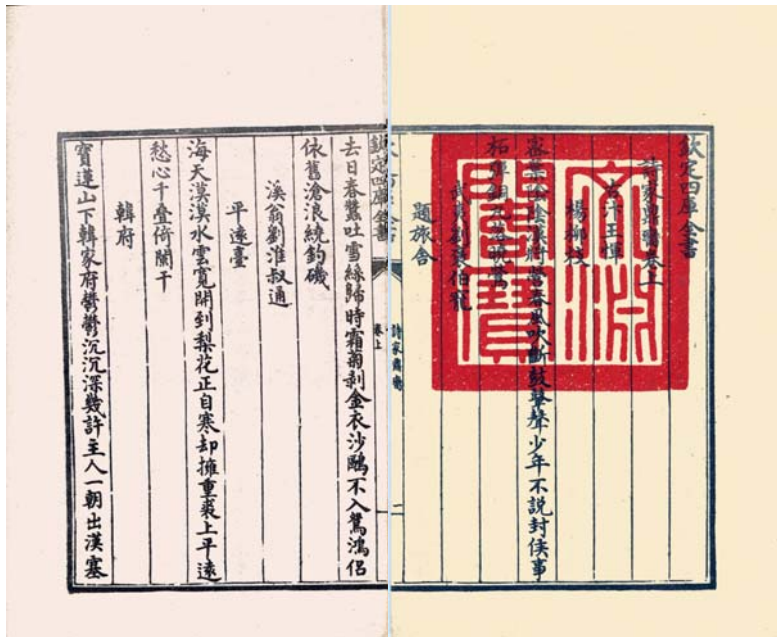 欽定四庫全書
詩家鼎臠卷上
古汴王惲
楊柳枝
密葉陰陰漢將營春風吹斷鼓鼙聲少年不説封侯事
柘彈銅丸落曉鶯
武夷劉褒伯寵
題旅舍
文淵閣寶
欽定四庫全書
詩家鼎臠
卷上
二
去日春蠶吐雪絲歸時霜菊剥金衣沙鷗不入鴛鴻侶
依舊滄浪繞釣磯
溪翁劉淮叔通
平遠臺
海天漠漠水雲寛開到梨花正自寒却擁重裘上平遠
愁心千疊倚闌干
韓府
寶蓮山下韓家府鬱鬱沉沉深幾許主人一朝出漢塞